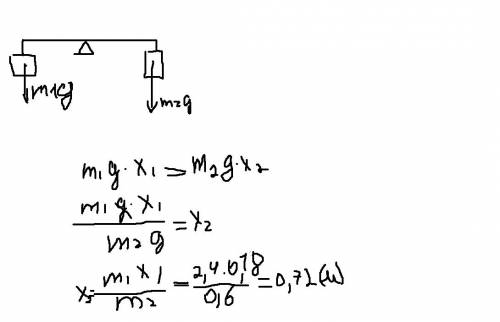 m1g
m2g
m1g · x1 = m2g · x2
m1g · x1 / m2g = x2
x2 = m1x1 / m2 = 2,4 · 0,18 / 0,6 = 0,72 (м)